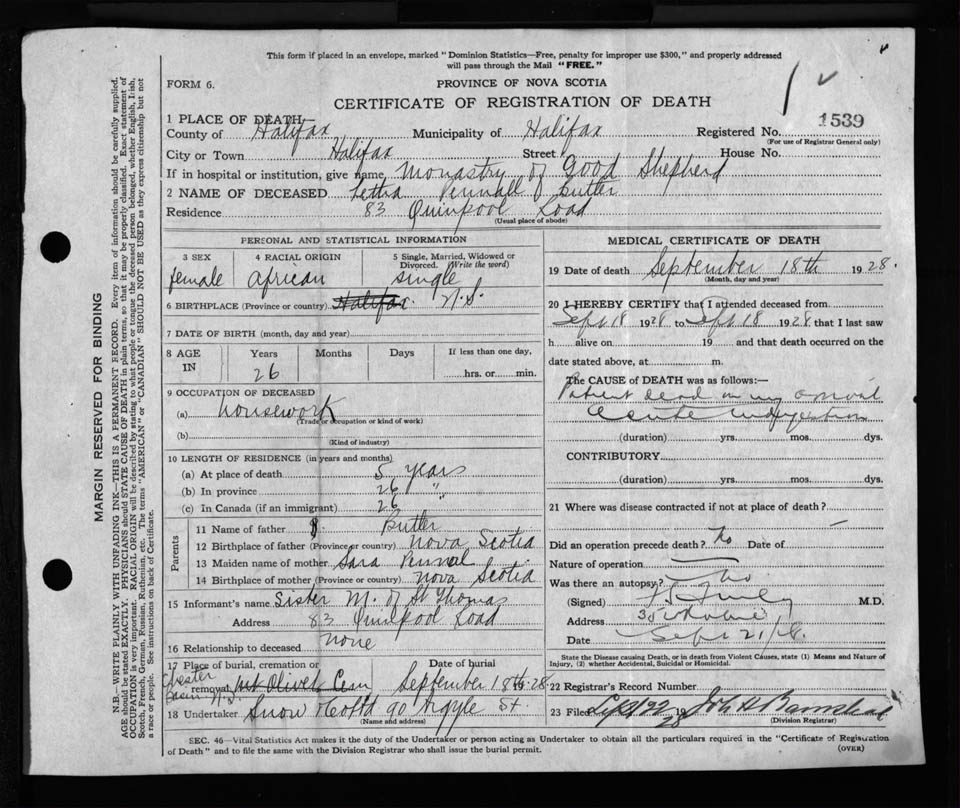 This form if placed in an envelope, marked "Dominion Statistics—Free, penalty for improper use $300," and properly addressed
will pass through the Mail "FREE."
FORM 6.
PROVINCE OF NOVA SCOTIA
CERTIFICATE OF REGISTRATION OF DEATH
1 PLACE OF DEATH—
County of Halifax Municipality of Halifax Registered No. 1539
(For use of Registrar General only)
City or Town Halifax Street House No.
If in hospital or institution, give name Monastry of Good Shepherd
2 NAME OF DECEASED Butler
Residence 83 Quinpool Road
(Usual place of abode)
PERSONAL AND STATISTICAL INFORMATION
3 SEX
female
4 RACIAL ORIGIN
African
5 Single, Married, Widowed or
Divorced. (Write the word)
single
6 BIRTHPLACE (Province or country) Halifax N.S.
7 DATE OF BIRTH (month, day and year)
8 AGE IN
Years Months Days If less than one day,
26 hrs. or min.
9 OCCUPATION OF DECEASED
(a) housework
(Trade or occupation or kind of work)
(b)
(Kind of industry)
10 LENGTH OF RESIDENCE (in years and months)
(a) At place of death 5 years
(b) In province 26 "
(c) In Canada (if an immigrant) 26 "
Parents
11 Name of father Butler
12 Birthplace of father (Province or country) Nova Scotia
13 Maiden name of mother Sara
14 Birthplace of mother (Province or country) Nova Scotia
15 Informant's name Sister M. of St Thomas
Address 83 Quinpool Road
16 Relationship to deceased none
17 Place of burial, cremation or Date of burial
Chester Basin N.S.
removal Mt Olivet Cem September 18th 28
18 Undertaker Snow 90 Argyle St.
(Name and address)
MEDICAL CERTIFICATE OF DEATH
19 Date of death September 18th 1928.
(Month, day and year)
20 I HEREBY CERTIFY that I attended deceased from
Sept 18 1928 to Sept 18 1928 that I last saw
h alive on 19 and that death occurred on the
date stated above, at m.
The CAUSE of DEATH was as follows:—
Patient dead on my arrival
acute indigestion
(duration) yrs. mos. dys.
CONTRIBUTORY
(duration) yrs. mos. dys.
21 Where was disease contracted if not at place of death?
Did an operation precede death? No Date of —
Nature of operation —
Was there an autopsy? No
(Signed) M.D.
Address
Date Sept 21/28.
State the Disease causing Death, or in death from Violent Causes, state (1) Means and Nature of
Injury, (2) whether Accidental, Suicidal or Homicidal.
22 Registrar's Record Number
23 Filed Sept 22 28 John H Barnstead
(Division Registrar)
SEC. 46—Vital Statistics Act makes it the duty of the Undertaker or person acting as Undertaker to obtain all the particulars required in the "Certificate of Registration
of Death" and to file the same with the Division Registrar who shall issue the burial permit. (OVER)
MARGIN RESERVED FOR BINDING
N.B.—WRITE PLAINLY WITH UNFADING INK—THIS IS A PERMANENT RECORD. Every item of information should be carefully supplied.
AGE should be stated EXACTLY. PHYSICIANS should STATE CAUSE OF DEATH in plain terms, so that it may be properly classified. Exact statement of
OCCUPATION is very important. RACIAL ORIGIN will be described by stating to what people or tongue the deceased person belonged, whether English, Irish,
Scotch, French, German, Russian, Ruthenian, etc. The terms "AMERICAN" or "CANADIAN" SHOULD NOT BE USED as they express citizenship but not
a race or people. See instructions on back of Certificate.